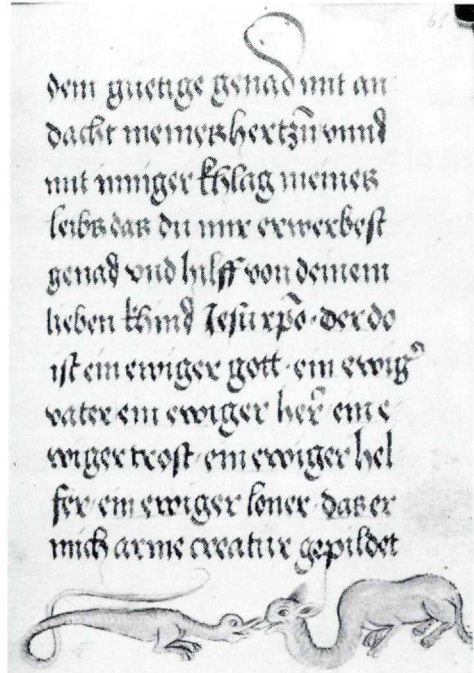 61
dein guetige genad mit an
dacht meines hertzn̄ vnnd
mit inniger khlag meines
leibs das du mir erwerbest
genad vnd hilff von deinem
lieben khind Jesu xp̄o · der do
ist ein ewiger gott · ein ewig᷒
vater · ein ewiger her̄ · ein e
wiger trost · ein ewiger hel
fer · ein ewiger loner · das er
mich arme creatur gepildet